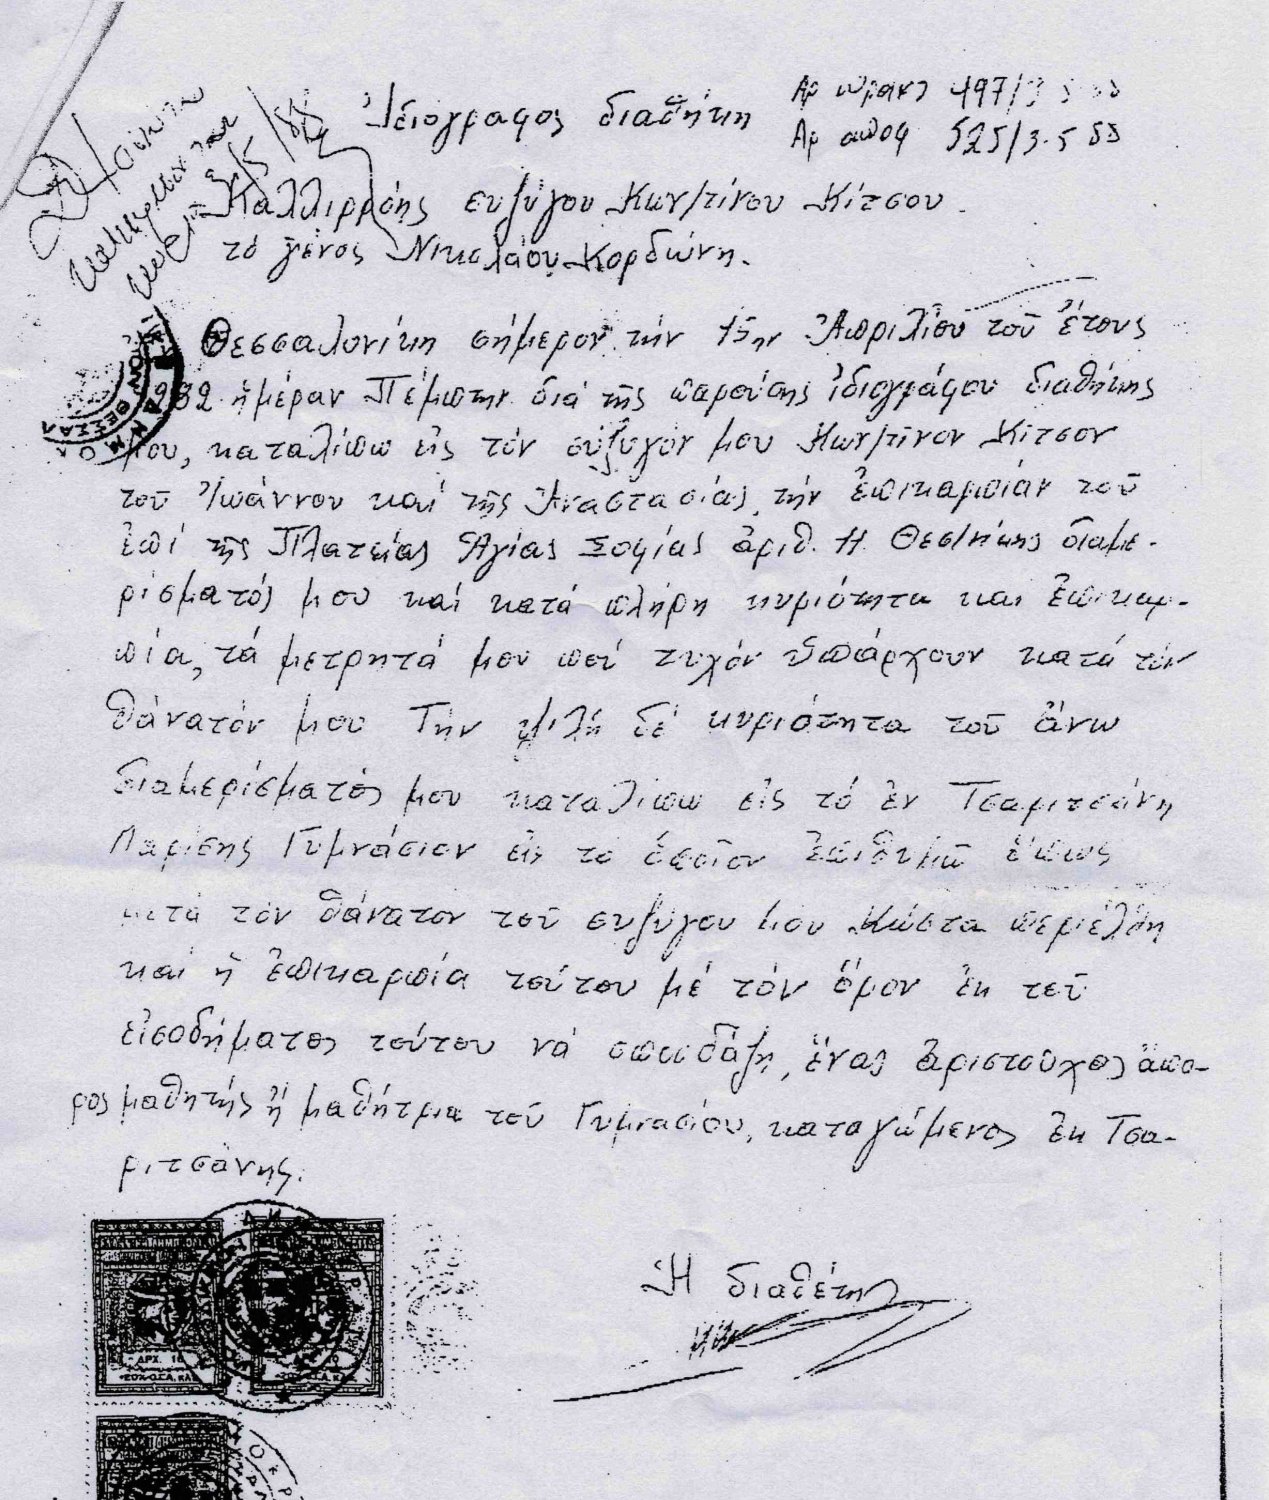 Ἰδιόγραφος διαθήκη
Αρ πρακτ 497/3 5 88
Αρ αποφ 525/3.5 88
Καλλιρρόης συζύγου Κων/τίνου Κίτσου.
τό γένος Νικολάου Κορδώνη.
Θεσσαλονίκη σήμερον τήν 15ην Ἀπριλίου τοῦ ἔτους
1982 ἡμέραν Πέμπτην διά τῆς παρούσης ἰδιογράφου διαθήκης
μου, καταλίπω εἰς τόν σύζυγόν μου Κων/τῖνον Κίτσον
τοῦ Ἰωάννου καί τῆς Ἀναστασίας, τήν ἐπικαρπίαν τοῦ
ἐπί τῆς Πλατείας Ἁγίας Σοφίας ἀριθ. Θεσ/νίκης διαμε-
ρίσματός μου καί κατά πλήρη κυριότητα καί ἐπικαρ-
πία, τά μετρητά μου πού τυχόν ὑπάρχουν κατά τόν
θάνατόν μου Τήν ψιλή δέ κυριότητα τοῦ ἄνω
διαμερίσματός μου καταλίπω εἰς τό ἐν Τσαριτσάνη
Λαρίσης Γυμνάσιον εἰς τό ὁποῖον ἐπιθυμῶ ὅπως
μετά τόν θάνατον τοῦ συζύγου μου Κώστα περιέλθη
καί ἡ ἐπικαρπία τούτου μέ τόν ὅρον ἐκ τοῦ
εἰσοδήματος τούτου νά σπουδάζη, ἕνας ἀριστοῦχος ἄπο-
ρος μαθητής ἤ μαθήτρια τοῦ Γυμνασίου, καταγώμενος ἐκ Τσα-
ριτσάνης.
Ἡ διαθέτης
ΔΡΧ. 10